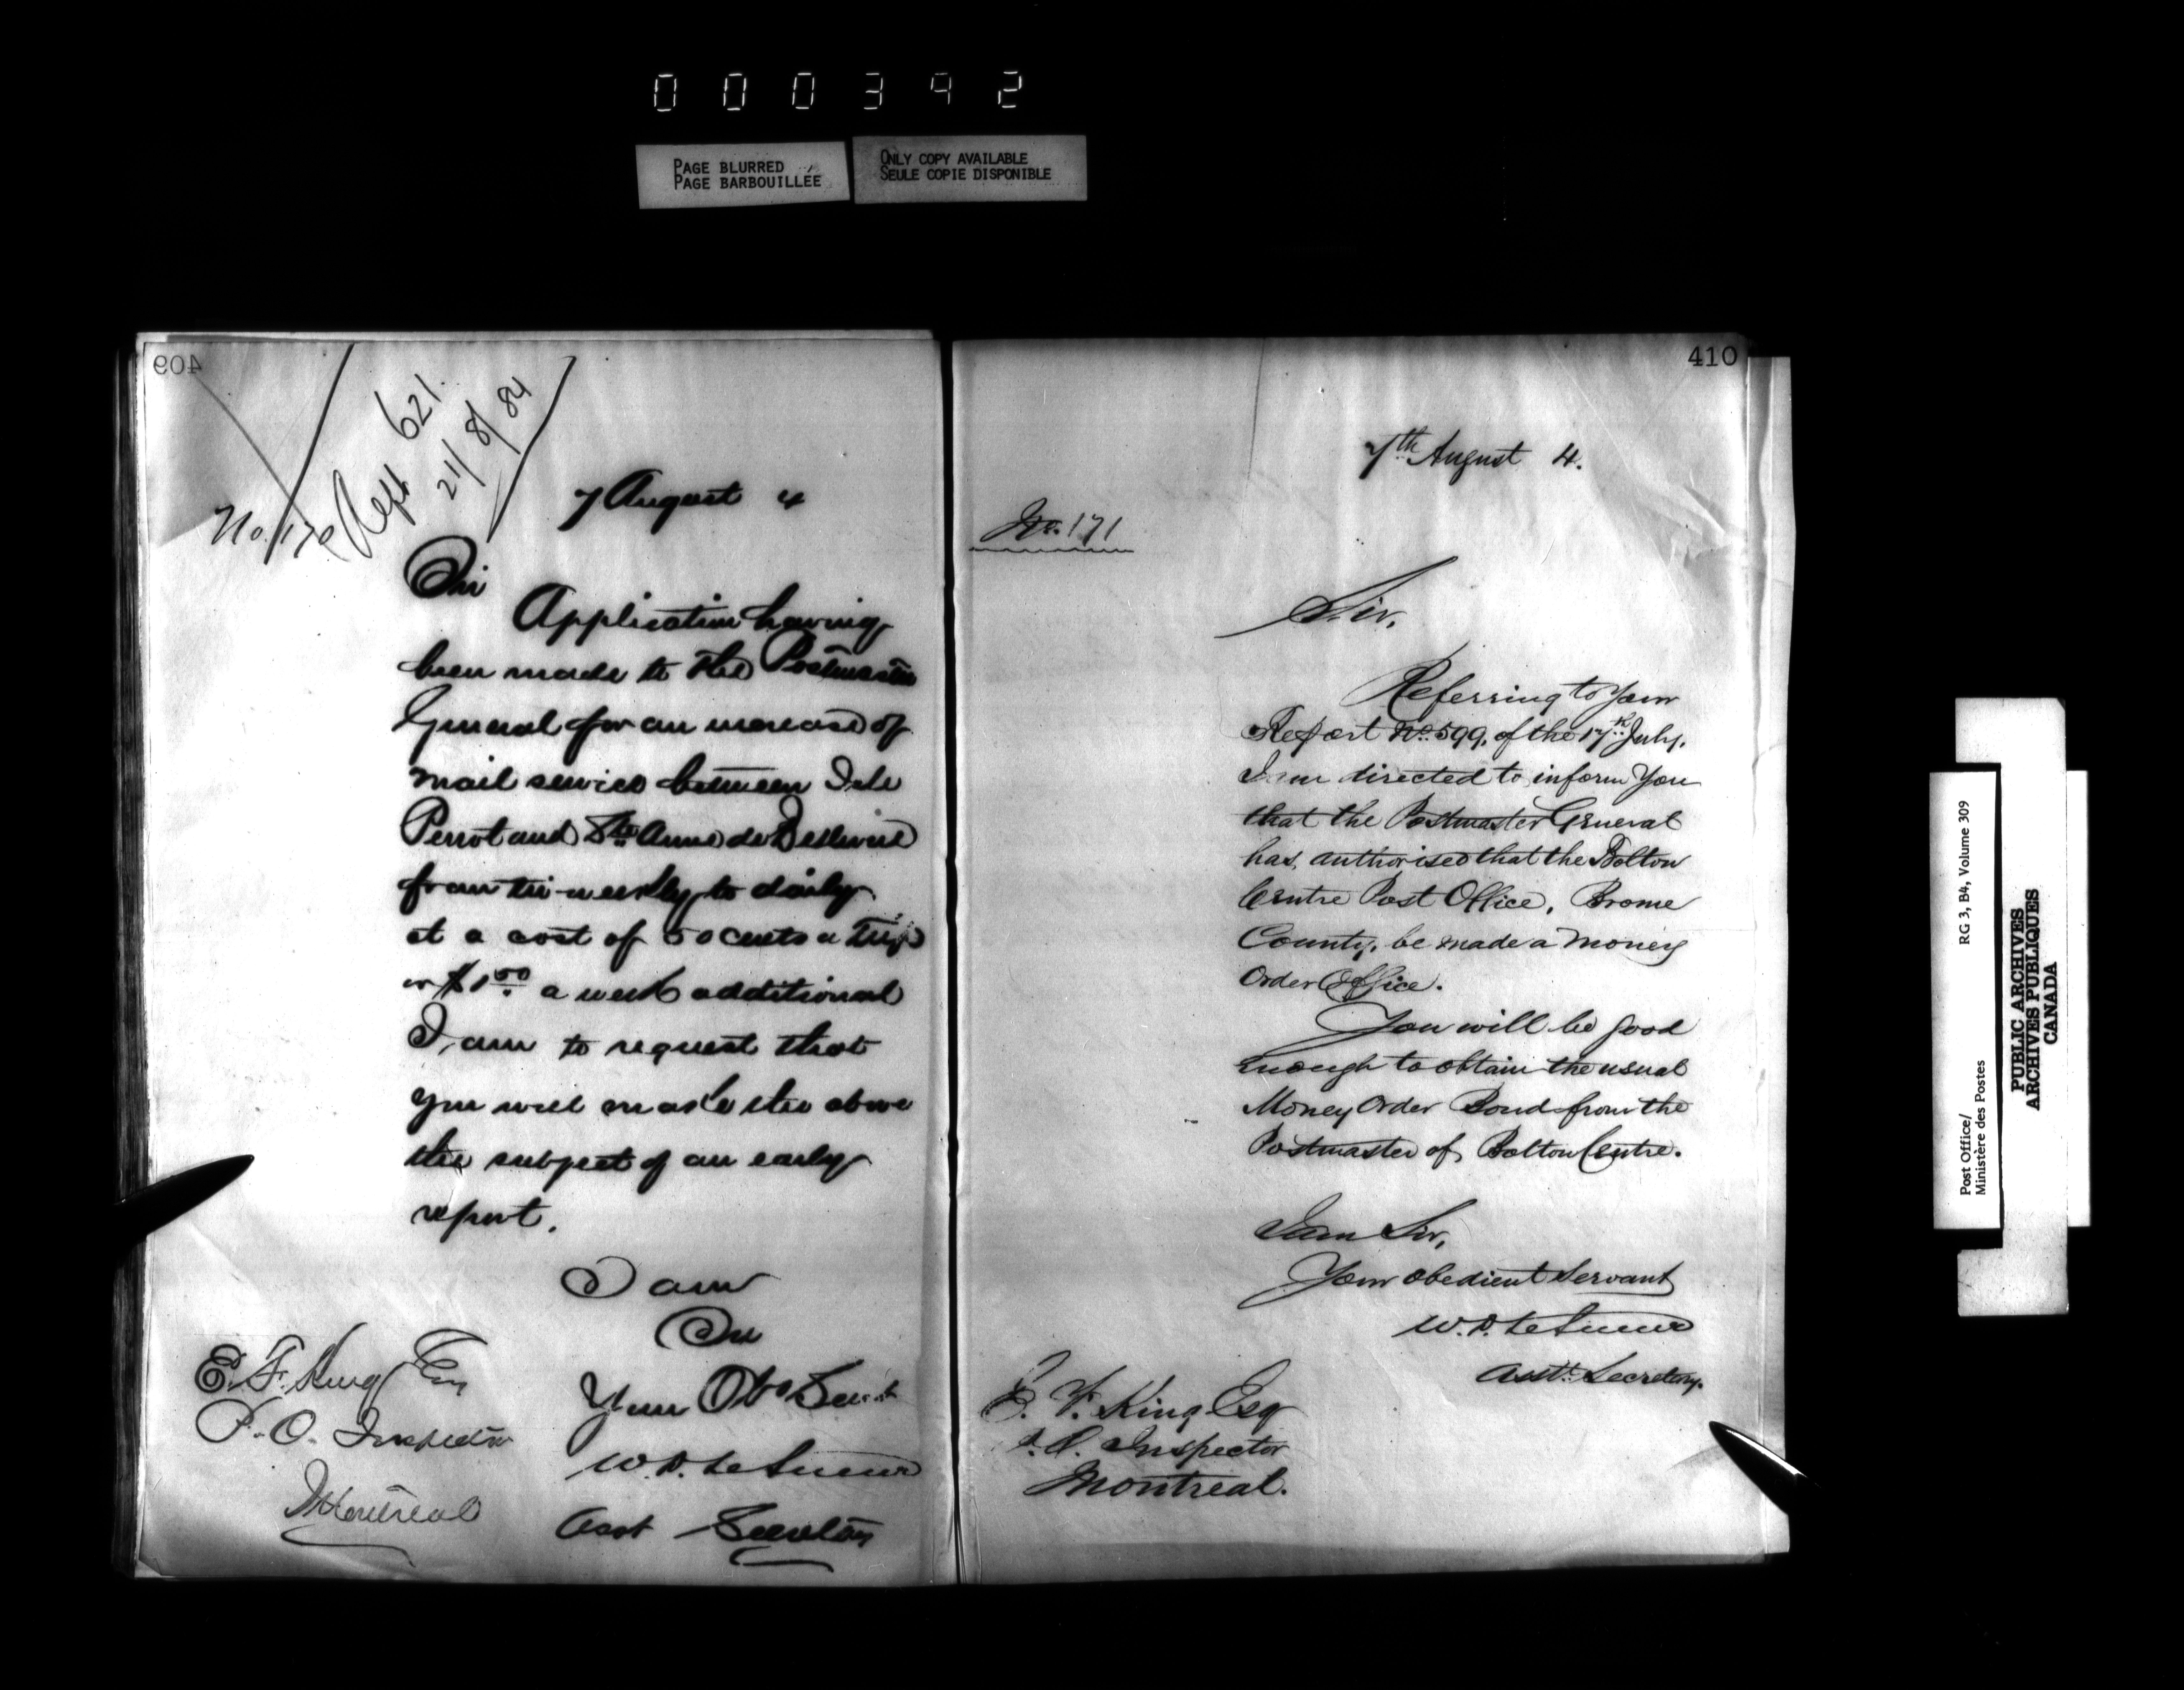 000392
PAGE BLURRED
PAGE BARBOUILLÉE
ONLY COPY AVAILABLE
SEULE COPIE DISPONIBLE
409
No. 170
Rept 621.
21/8/84
7 August 4
Sir
Application having
been made to the Postmaster
General for an increase of
mail service between Isle
Perrot and Ste Anne de Bellevue
from tri-weekly to daily
at a cost of 50 cents a trip
or $1.50 a week additional
I am to request that
you will make the above
the subject of an early
report.
I am
Sir
Your Obt Servt
W. D. LeSueur
Asst Secretary
E. F. King Esq
P. O. Inspector
Montreal
410
7th August 4.
No. 171
Sir,
Referring to Your
Report No. 599, of the 17th July,
I am directed to inform You
that the Postmaster General
has authorised that the Bolton
Centre Post Office, Brome
County, be made a Money
Order Office.
You will be good
enough to obtain the usual
Money Order Bond from the
Postmaster of Bolton Centre.
I am Sir,
Your obedient Servant
W. D. LeSueur
Asst. Secretary.
E. F. King Esq
P. O. Inspector
Montreal.
Post Office/
Ministère des Postes
RG 3, B4, Volume 309
PUBLIC ARCHIVES
ARCHIVES PUBLIQUES
CANADA